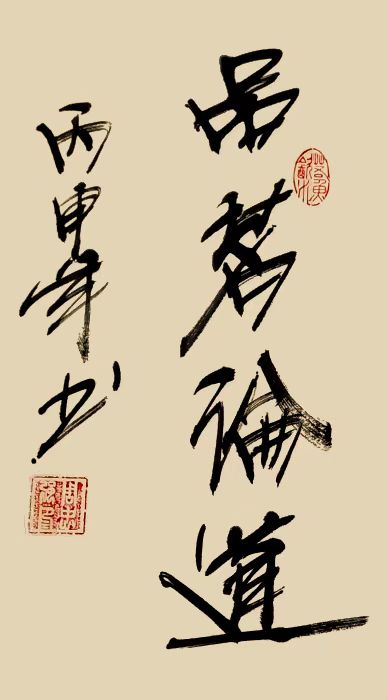 品茗論道
丙申年书